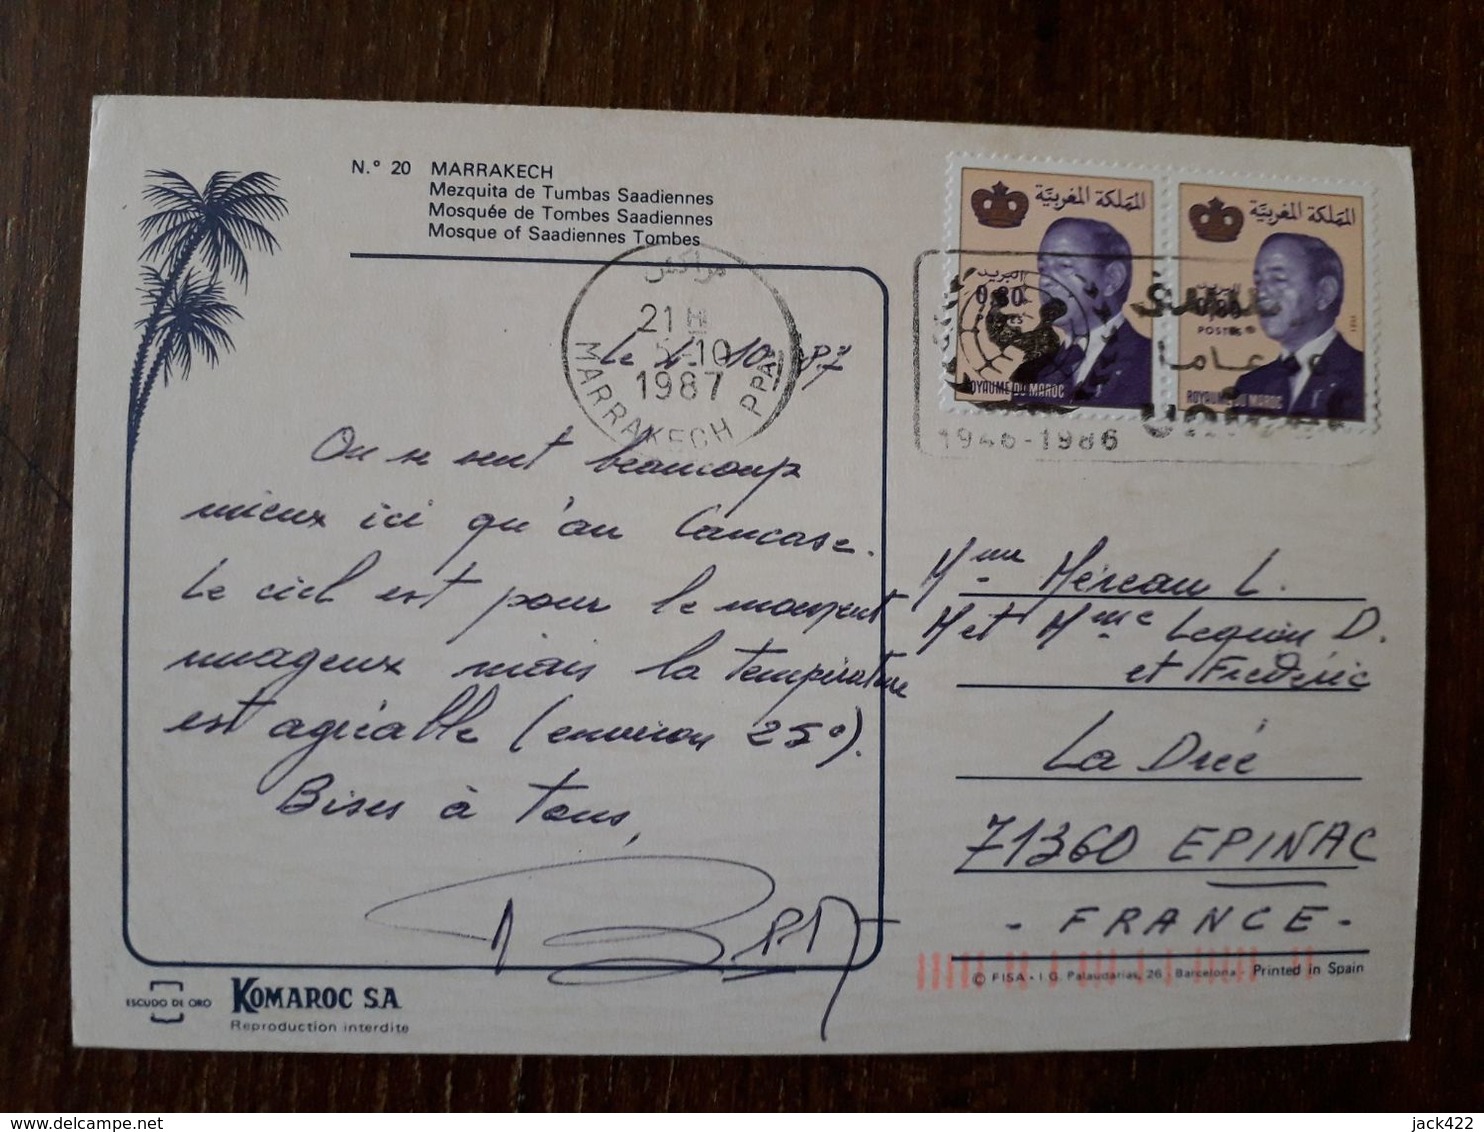 N.° 20 MARRAKECH
Mezquita de Tumbas Saadiennes
Mosquée de Tombes Saadiennes
Mosque of Saadiennes Tombes
المملكة المغربية
البريد
0,80
POSTES
ROYAUME DU MAROC
المملكة المغربية
البريد
0,80
POSTES
ROYAUME DU MAROC
مراكش
21 H
5-10
1987
MARRAKECH PPAL
1946-1986
عاما
Le 10 87
On se sent beaucoup
mieux ici qu'au Caucase.
Le ciel est pour le moment
nuageux mais la température
est agréable (environ 25°).
Bises à tous,
Mme Méreau L.
M et Mme D.
et Frédéric
La Drée
71360 EPINAC
- FRANCE -
ESCUDO DE ORO
KOMAROC S.A.
Reproduction interdite
© FISA - I.G. Palaudarias, 26 - Barcelona Printed in Spain
delcampe.net
jack422